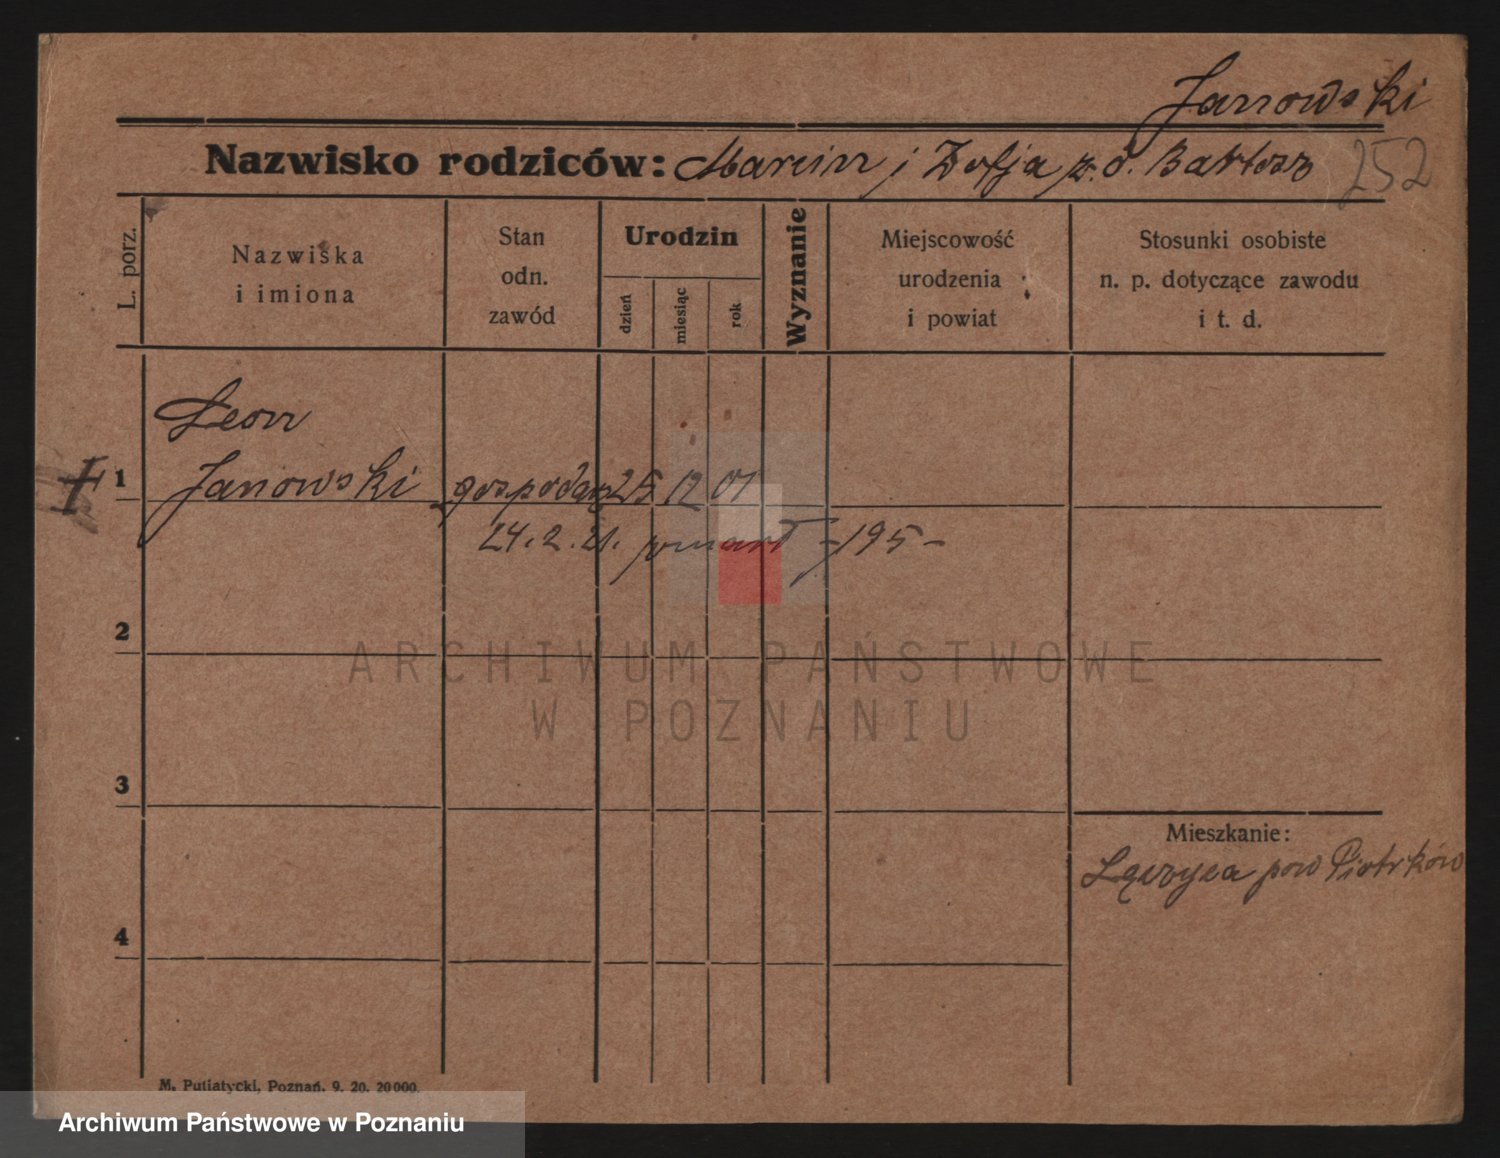 Janowski
Nazwisko rodziców: Marcin i Zofja z. d. Bartosz 252
L. porz.
Nazwiska
i imiona
Stan
odn.
zawód
Urodzin
dzień
miesiąc
rok
Wyznanie
Miejscowość
urodzenia
i powiat
Stosunki osobiste
n. p. dotyczące zawodu
i t. d.
Leon
1 Janowski gospodarz 25 12 01
24. 2. 21. zmarł -195-
ARCHIWUM PAŃSTWOWE
W POZNANIU
2
3
Mieszkanie:
pow Piotrków
4
M. Putiatycki, Poznań. 9. 20. 20 000.
Archiwum Państwowe w Poznaniu